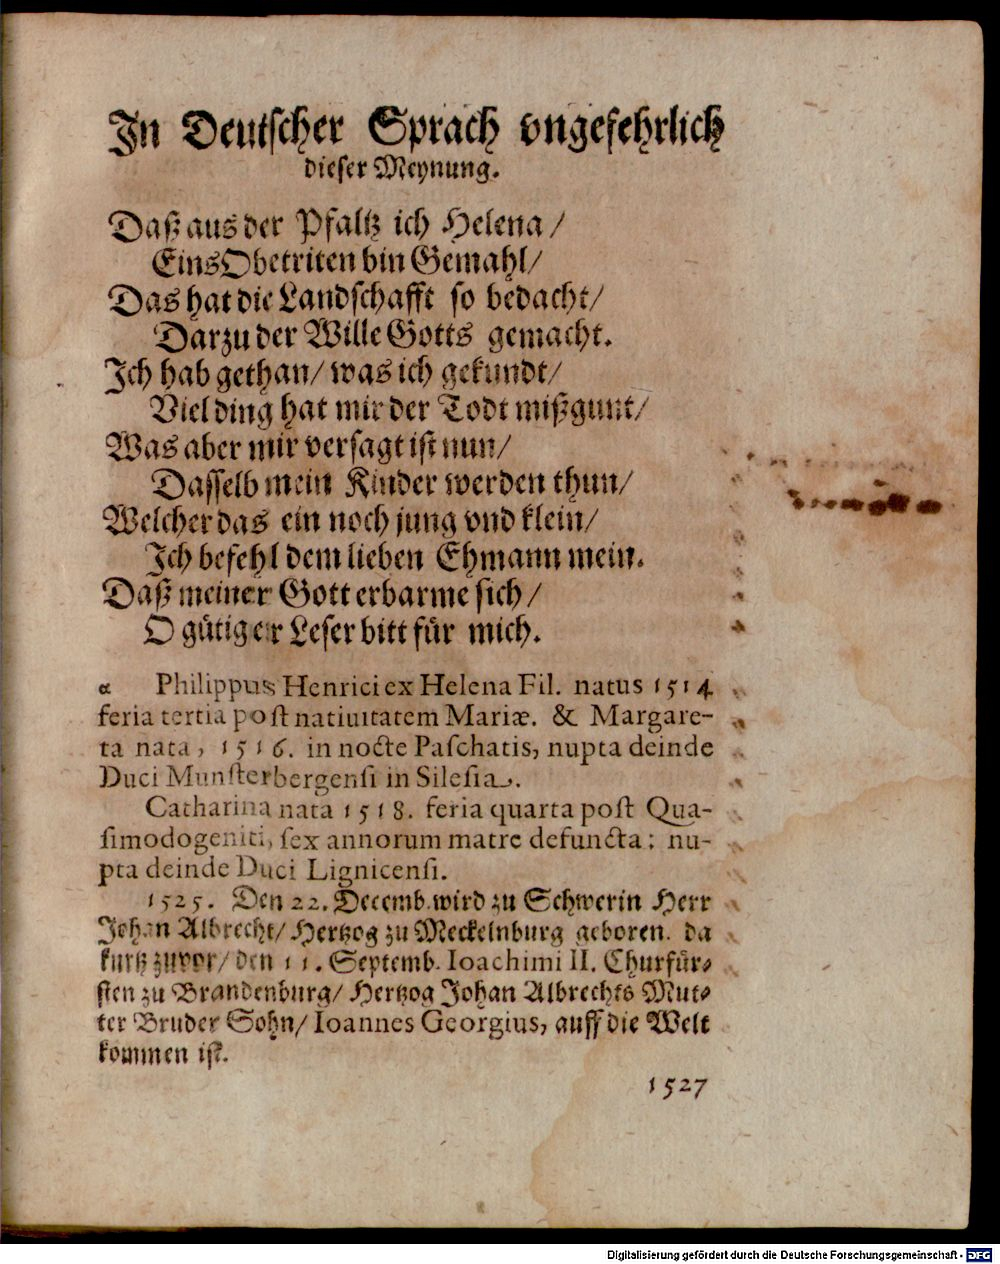 In Deutscher Sprach vngefehrlich
dieser Meynung.
Daß aus der Pfaltz ich Helena /
Eins Obetriten bin Gemahl /
Das hat die Landschafft so bedacht /
Darzu der Wille Gotts gemacht.
Ich hab gethan / was ich gekundt /
Viel ding hat mir der Todt mißgunt /
Was aber mir versagt ist nun /
Dasselb mein Kinder werden thun /
Welcher das ein noch jung vnd klein /
Ich befehl dem lieben Ehmann mein.
Daß meiner Gott erbarme sich /
O gütiger Leser bitt für mich.
α Philippus Henrici ex Helena Fil. natus 1514
feria tertia post natiuitatem Mariæ. & Margare-
ta nata, 1516. in nocte Paschatis, nupta deinde
Duci Munsterbergensi in Silesia.
Catharina nata 1518. feria quarta post Qua-
simodogeniti, sex annorum matre defuncta; nu-
pta deinde Duci Lignicensi.
1525. Den 22. Decemb. wird zu Schwerin Herr
Johan Albrecht / Hertzog zu Meckelnburg geboren. da
kurtz zuvor / den 11. Septemb. Ioachimi II. Churfür-
sten zu Brandenburg / Hertzog Johan Albrechts Mut-
ter Bruder Sohn / Ioannes Georgius, auff die Welt
kommen ist.
1527
Digitalisierung gefördert durch die Deutsche Forschungsgemeinschaft - DFG